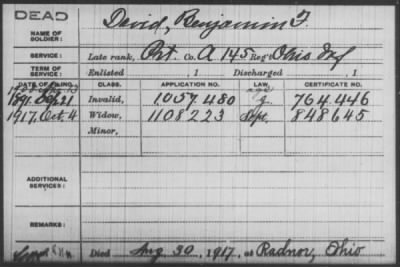 DEAD
NAME OF SOLDIER: David, Benjamin F.
SERVICE: Late rank, Pvt. Co. A 145 Reg't Ohio Inf
TERM OF SERVICE: Enlisted , 1 Discharged , 1
DATE OF FILING. CLASS. APPLICATION NO. LAW. CERTIFICATE NO.
1891. Sep 21 Invalid, 1057.480 764.446
1917. Oct. 4 Widow, 1108223 Sept. 848645
Minor,
ADDITIONAL SERVICES:
REMARKS:
Died Aug 30, 1917, at Radnor, Ohio